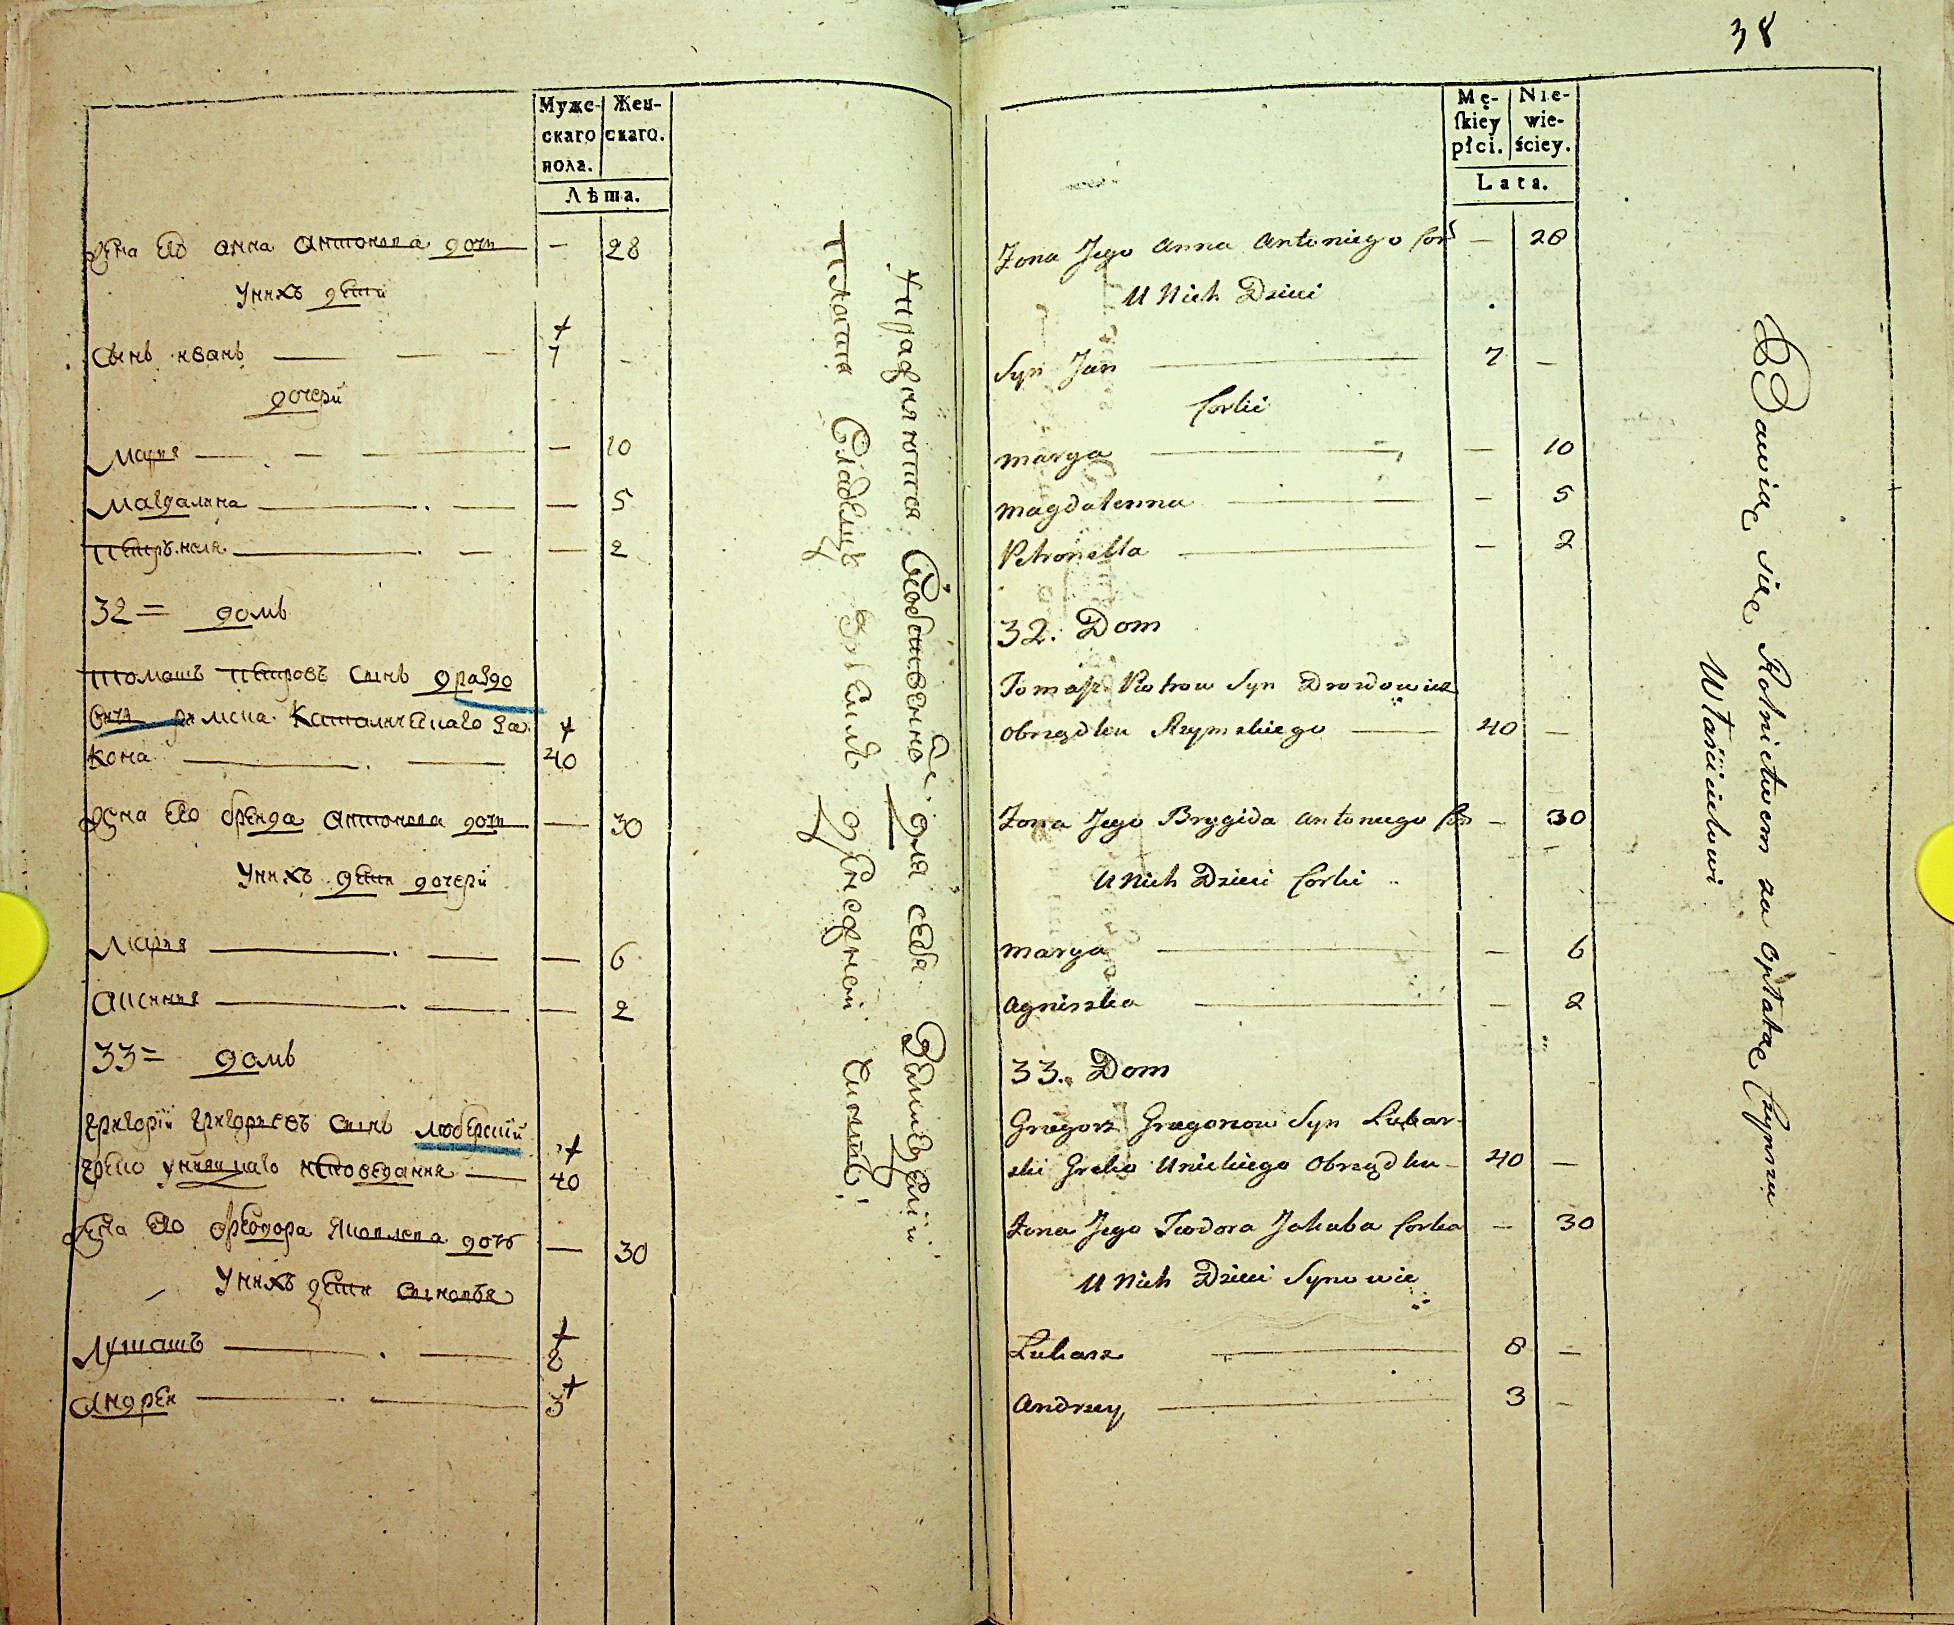 38
Муже-
скаго
пола.
Жен-
скаго.
Лѣта.
Жена Его анна антонова дочь — 28
Унихъ дети
Сынъ иванъ — — — 7 -
дочери
Мария — — — — 10
Магдалина — — — 5
Петрунеля — — — 2
32 = домъ
томашъ петровъ сынъ дроздо
вичъ римска католическаго за
кона — — 40
Жена Его бренда антонова дочь — 30
Унихъ дети дочери
Мария — — — 6
Аксиния — — — 2
33 = домъ
григорій григорьевъ сынъ люберский
греко униятцкаго исповедания — 40
Жена Его феодора яковлева дочь — 30
Унихъ дети сыновья
Лукашъ — — 8
Андреи — — 3
Упражняются собственно для себя
платя владелцу землѣ
Mę-
ſkiey
płci.
Nie-
wie-
ściey.
Lata.
Zona Jego Anna Antoniego Cor — 28
U Nich Dzieci
Syn Jan — 7 —
Corki
Marya — — 10
Magdalenna — — 5
Petronella — — 2
32. Dom
Tomasz Piotrow Syn Drozdowicz
Obrządku Rzymskiego — 40 —
Zona Jego Brygida Antoniego Cor — 30
U Nich Dzieci Corki
Marya — — 6
Agniszka — — 2
33. Dom
Grzegorz Grzegorzow Syn Lubar-
ski Greko Unickiego Obrządku — 40 —
Zona Jego Teodora Jakuba Corka — 30
U Nich Dzieci Synowie
Lukasz — 8 —
Andrzey — 3 —
Bawiąc się Rolnictwem za opłatą Czynszu
Właścicielowi